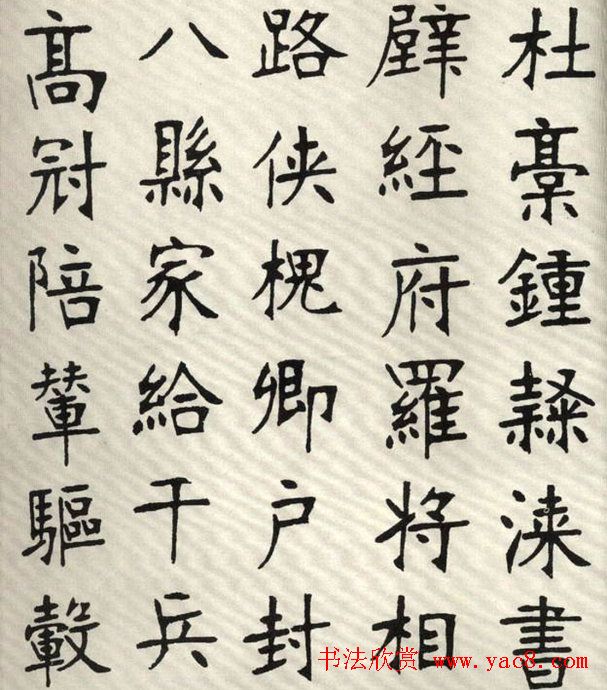 杜稾鍾隸漆書
壁經府羅将相
路侠槐卿户封
八縣家給千兵
髙冠陪輦驅轂
书法欣赏 www.yac8.com